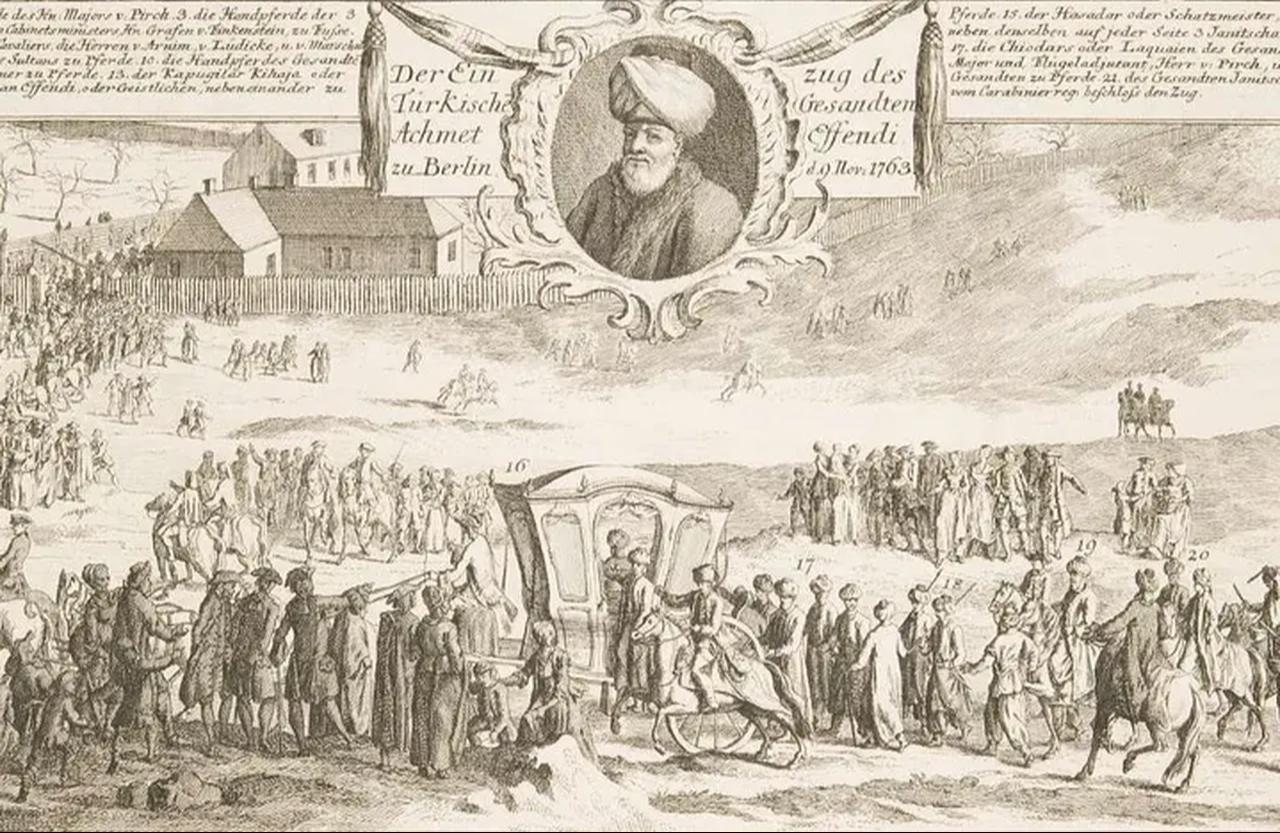 e des Hn. Majors v. Pirch. 3. die Handpferde der 3
Cabinetsministers Hn. Grafen v. Finkenstein, zu Fusse.
Cavaliers, die Herren v. Arnim, v. Lüdicke, u. v. Marscha
Sultans zu Pferde. 10. die Handpferdes des Gesandte
ner zu Pferde. 13. der Kapugilar Kihaja oder
an Effendi, oder Geistlichen, neben einander zu
Der Ein zug des
Türkische Gesandten
Achmet Effendi
zu Berlin d. 9 Nov: 1763.
Pferde. 15. der Hasadar oder Schatzmeister
neben denselben auf jeder Seite 3 Janitscha
17. die Chiodars oder Laquaien des Gesan
Major und Flügeladjutant, Herr v: Pirch, u
Gesandten zu Pferde 21. des Gesandten Janitsc
vom Carabinier reg: beschloss den Zug.
16
17
18
19
20